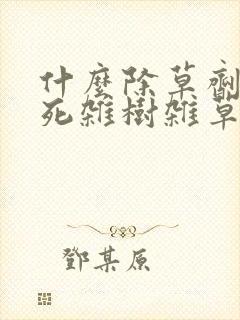 什麼除草劑
死雜樹雜草
鄧某原